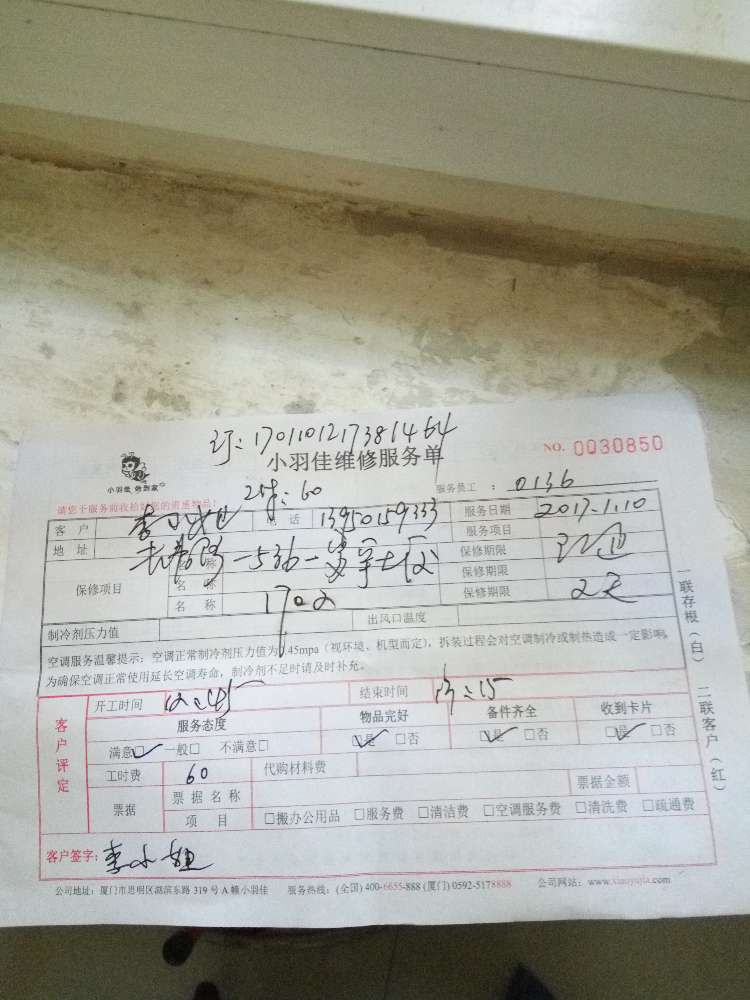 订:1701101217381464
小羽佳维修服务单 NO. 0030850
小羽佳 帮到家
请您于服务前收拾好您的贵重物品! 服务员工 : 0136
60
客 户 李小姐 电 话 13950159333 服务日期 2017.1.10
地 址 服务项目
保修项目 名 称 保修期限
名 称 保修期限
名 称 1702 保修期限 2天
制冷剂压力值 出风口温度
空调服务温馨提示:空调正常制冷剂压力值为 .45mpa(视环境、机型而定),拆装过程会对空调制冷或制热造成一定影响,
为确保空调正常使用延长空调寿命,制冷剂不足时请及时补充。
客户评定
开工时间 12:45 结束时间 13:15
服务态度 物品完好 备件齐全 收到卡片
满意□✓ 一般□ 不满意□ □✓是 □否 □✓是 □否 □✓是 □否
工时费 60 代购材料费
票据 票 据 名 称 票据金额
项 目 □搬办公用品 □服务费 □清洁费 □空调服务费 □清洗费 □疏通费
客户签字: 李小姐
公司地址:厦门市思明区湖滨东路 319 号 A 幢小羽佳 服务热线:(全国) 400-6655-888 (厦门) 0592-5178888 公司网站:www.xiaoyujia.com
一联存根(白) 二联客户(红)